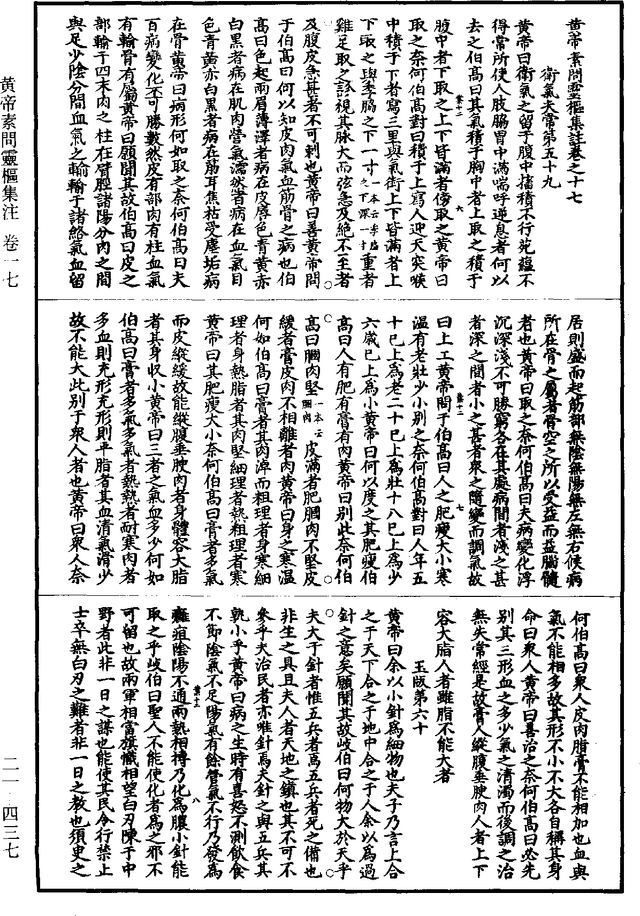 黄帝素問靈樞集註卷之十七
衛氣失常第五十九
黄帝曰衛氣之留于腹中搐積不行苑蘊不
得常所使人肢脇胃中滿喘呼逆息者何以
去之伯高曰其氣積于胸中者上取之積于
腹中者下取之上下皆滿者傍取之黄帝曰
取之奈何伯高對曰積于上寫人迎天突喉
中積于下者寫三里與氣街上下皆滿者上
下取之與季脇之下一寸一本云季脇之下深一寸重者
雞足取之診視其脉大而弦急及絶不至者
及腹皮急甚者不可刺也黄帝曰善黄帝問
于伯高曰何以知皮肉氣血筋骨之病也伯
高曰色起兩眉薄澤者病在皮唇色青黄赤
白黑者病在肌肉營氣濡然者病在血氣目
色青黄赤白黑者病在筋耳焦枯受塵垢病
在骨黄帝曰病形何如取之奈何伯高曰夫
百病變化不可勝數然皮有部肉有柱血氣
有輸骨有屬黄帝曰願聞其故伯高曰皮之
部輸于四末肉之柱在臂脛諸陽分肉之間
與足少陰分間血氣之輸輸于諸絡氣血留
居則盛而起筋部無陰無陽無左無右候病
所在骨之屬者骨空之所以受益而益腦髓
者也黄帝曰取之奈何伯高曰夫病變化浮
沉深淺不可勝窮各在其處病間者淺之甚
者深之間者小之甚者衆之隨變而調氣故
曰上工黄帝問于伯高曰人之肥瘦大小寒
温有老壯少小别之奈何伯高對曰人年五
十已上爲老二十已上爲壯十八已上爲少
六歲已上爲小黄帝曰何以度之其肥瘦伯
高曰人有肥有膏有肉黄帝曰别此奈何伯
高曰膕肉堅一本云䐃肉皮滿者肥膕肉不堅皮
緩者膏皮肉不相離者肉黄帝曰身之寒温
何如伯高曰膏者其肉淖而粗理者身寒細
理者身熱脂者其肉堅細理者熱粗理者寒
黄帝曰其肥瘦大小奈何伯高曰膏者多氣
而皮縱緩故能縱腹垂腴肉者身體容大脂
者其身收小黄帝曰三者之氣血多少何如
伯高曰膏者多氣多氣者熱熱者耐寒肉者
多血則充形充形則平脂者其血清氣滑少
故不能大此别于衆人者也黄帝曰衆人奈
何伯高曰衆人皮肉脂膏不能相加也血與
氣不能相多故其形不小不大各自稱其身
命曰衆人黄帝曰善治之奈何伯高曰必先
别其三形血之多少氣之清濁而後調之治
無失常經是故膏人縱腹垂腴肉人者上下
容大脂人者雖脂不能大者
玉版第六十
黄帝曰余以小針爲細物也夫子乃言上合
之于天下合之于地中合之于人余以爲過
針之意矣願聞其故岐伯曰何物大於天乎
夫大于針者惟五兵者焉五兵者死之備也
非生之具且夫人者天地之鎮也其不可不
參乎夫治民者亦唯針焉夫針之與五兵其
孰小乎黄帝曰病之生時有喜怒不測飲食
不節陰氣不足陽氣有餘營氣不行乃發爲
癰疽陰陽不通兩熱相搏乃化爲膿小針能
取之乎岐伯曰聖人不能使化者爲之邪不
可留也故兩軍相當旗幟相望白刃陳于中
野者此非一日之謀也能使其民令行禁止
士卒無白刃之難者非一日之教也須臾之
黄帝素問靈樞集注 卷一七
二一 四三七